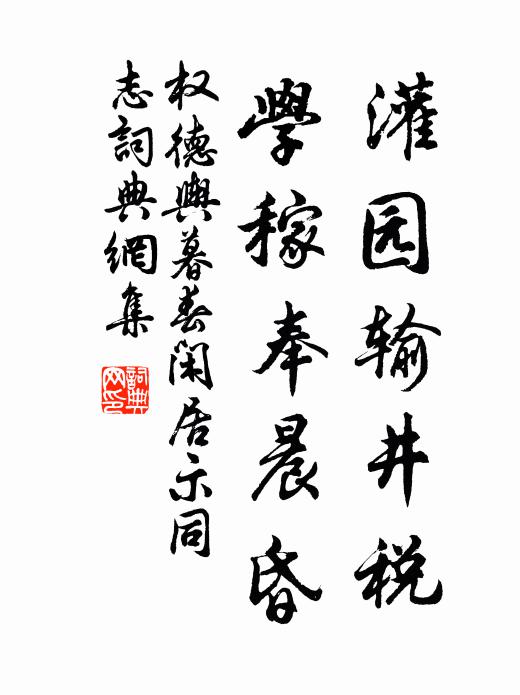 灌园输井税
學稼奉晨昏
权德輿暮春闲居示同
志詞典網集
詞典
网印